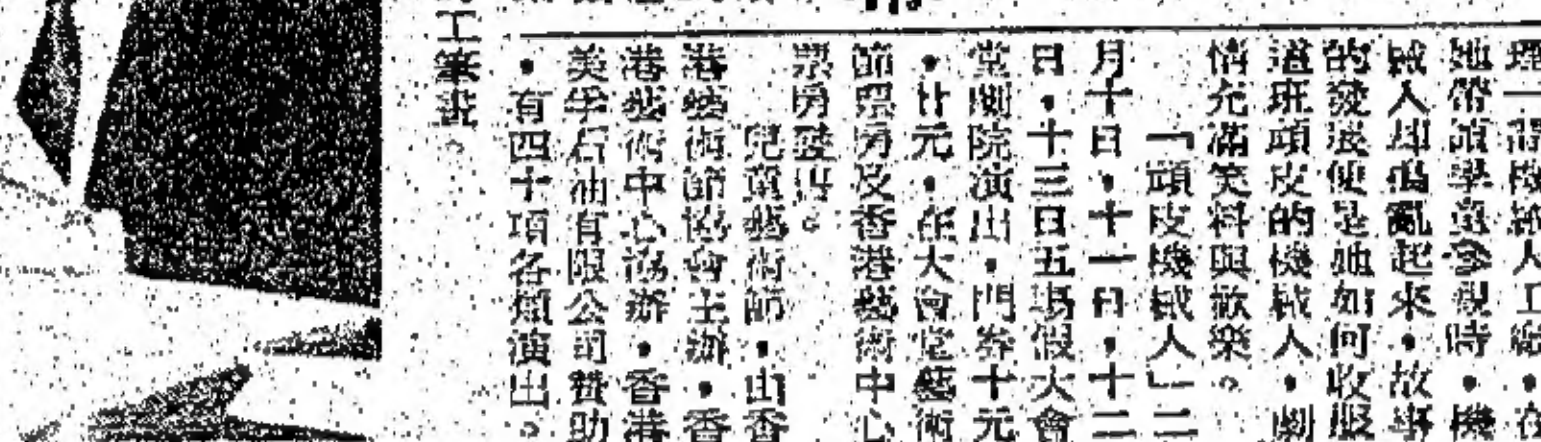 理一間機械人工廠，在
她帶領學童參觀時，機
械人却搗亂起來，故事
的發展便是她如何收服
道班頑皮的機械人，劇
情充滿笑料與歡樂。
「頑皮機械人」二
月十日，十一日，十二
日，十三日五場假大會
堂劇院演出，門券十元
，廿元，在大會堂藝術
節票房及香港藝術中心
票房發售。
兒童藝術節，由香
港藝術節協會主辦，香
港藝術中心協辦，香港
美孚石油有限公司贊助
，有四十項各類演出。
工筆畫。